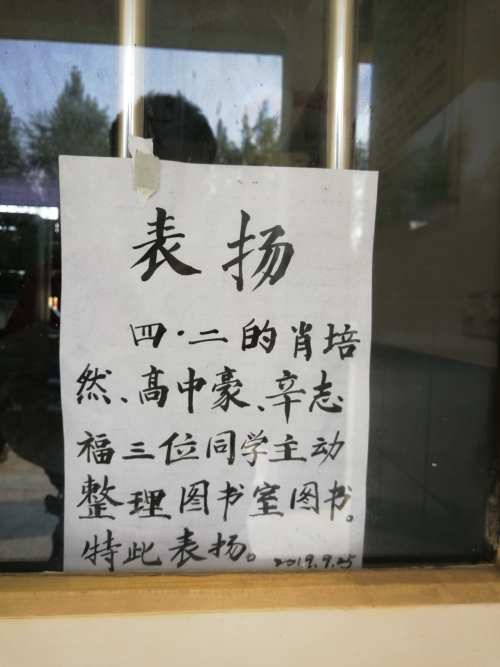 表扬
四·二的肖培
然、高中豪、辛志
福三位同学主动
整理图书室图书。
特此表扬。2019.9.25